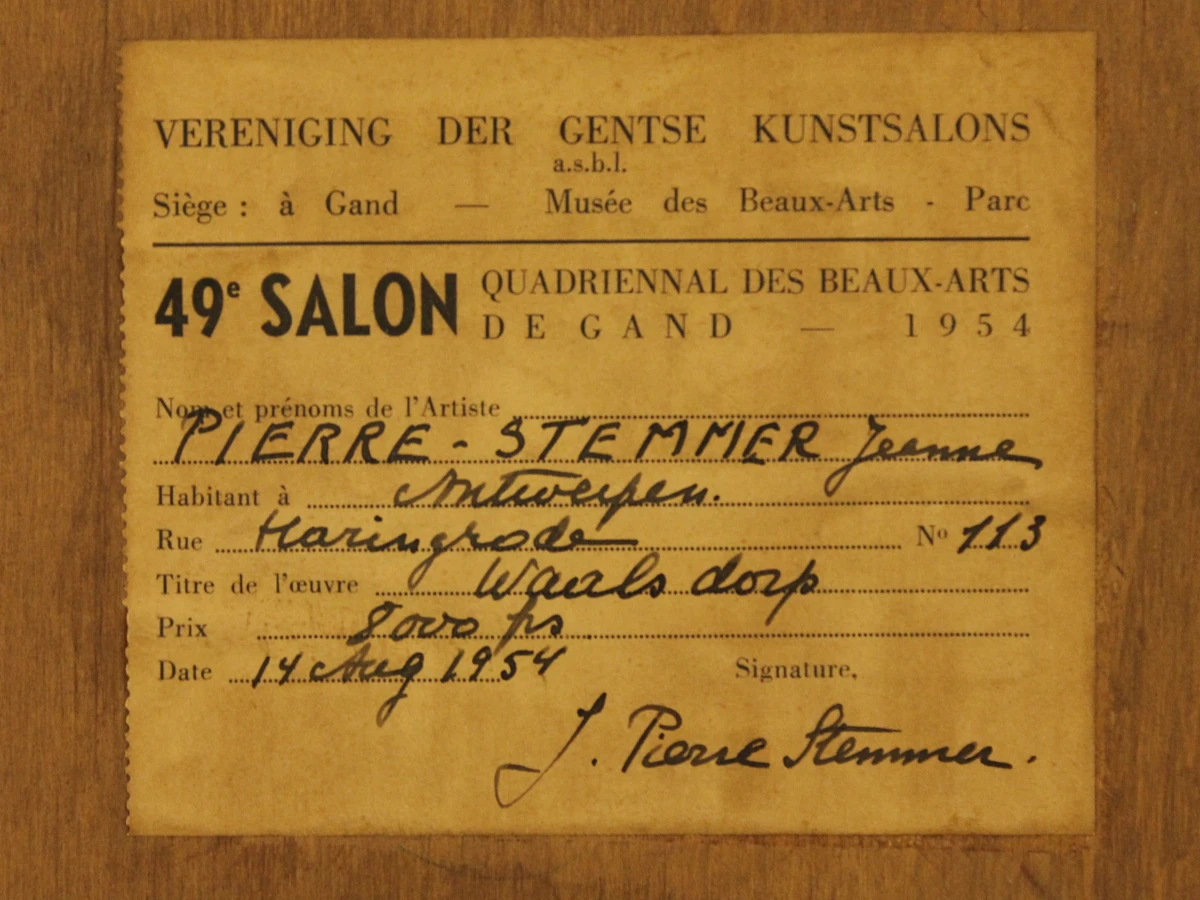 VERENIGING DER GENTSE KUNSTSALONS
a.s.b.l.
Siège : à Gand — Musée des Beaux-Arts - Parc
49e SALON QUADRIENNAL DES BEAUX-ARTS
DE GAND — 1954
Nom et prénoms de l'Artiste
PIERRE - STEMMER Jeanne
Habitant à Antwerpen.
Rue Haringrode No 113
Titre de l'œuvre Waalsdorp
Prix 8000 frs
Date 14 Aug 1954 Signature,
J. Pierre Stemmer.